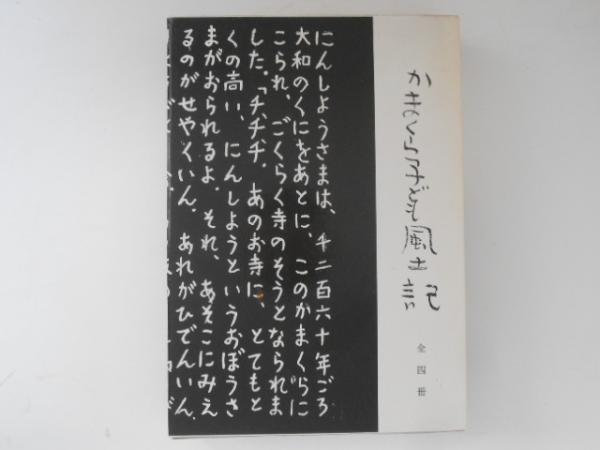 かまくら子ども風土記
全四冊
にんしようさまは、千二百六十年ごろ
大和のくにをあとに、このかまくらに
こられ、ごくらく寺のそうとなられま
した。「チ、チ、チ、あのお寺に、とても と
くの高い、にんしようというおぼうさ
まがおられるよ。それ、あそこにみえ
るのがせやくいん、あれがひでんいん、